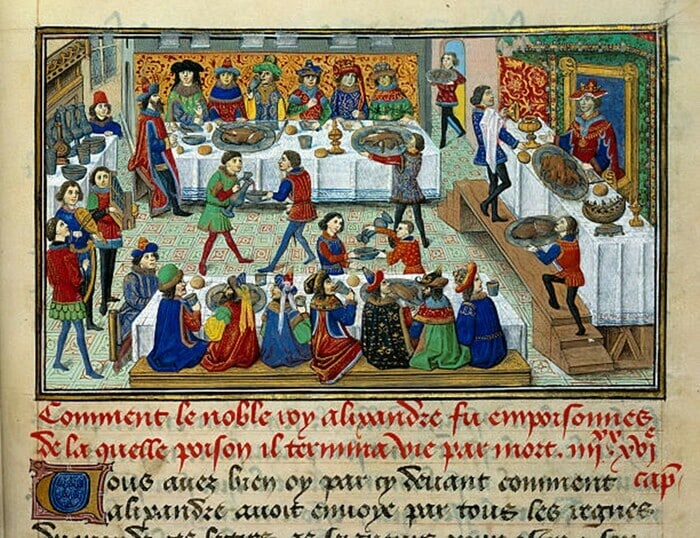 Comment le noble roy alixandre fu empoisonnes
de la quelle poison il termina vie par mort. iiijxx xvje
cap
Vous avez bien oy par cy devant comment
alixandre avoit envoye par tous les regnes